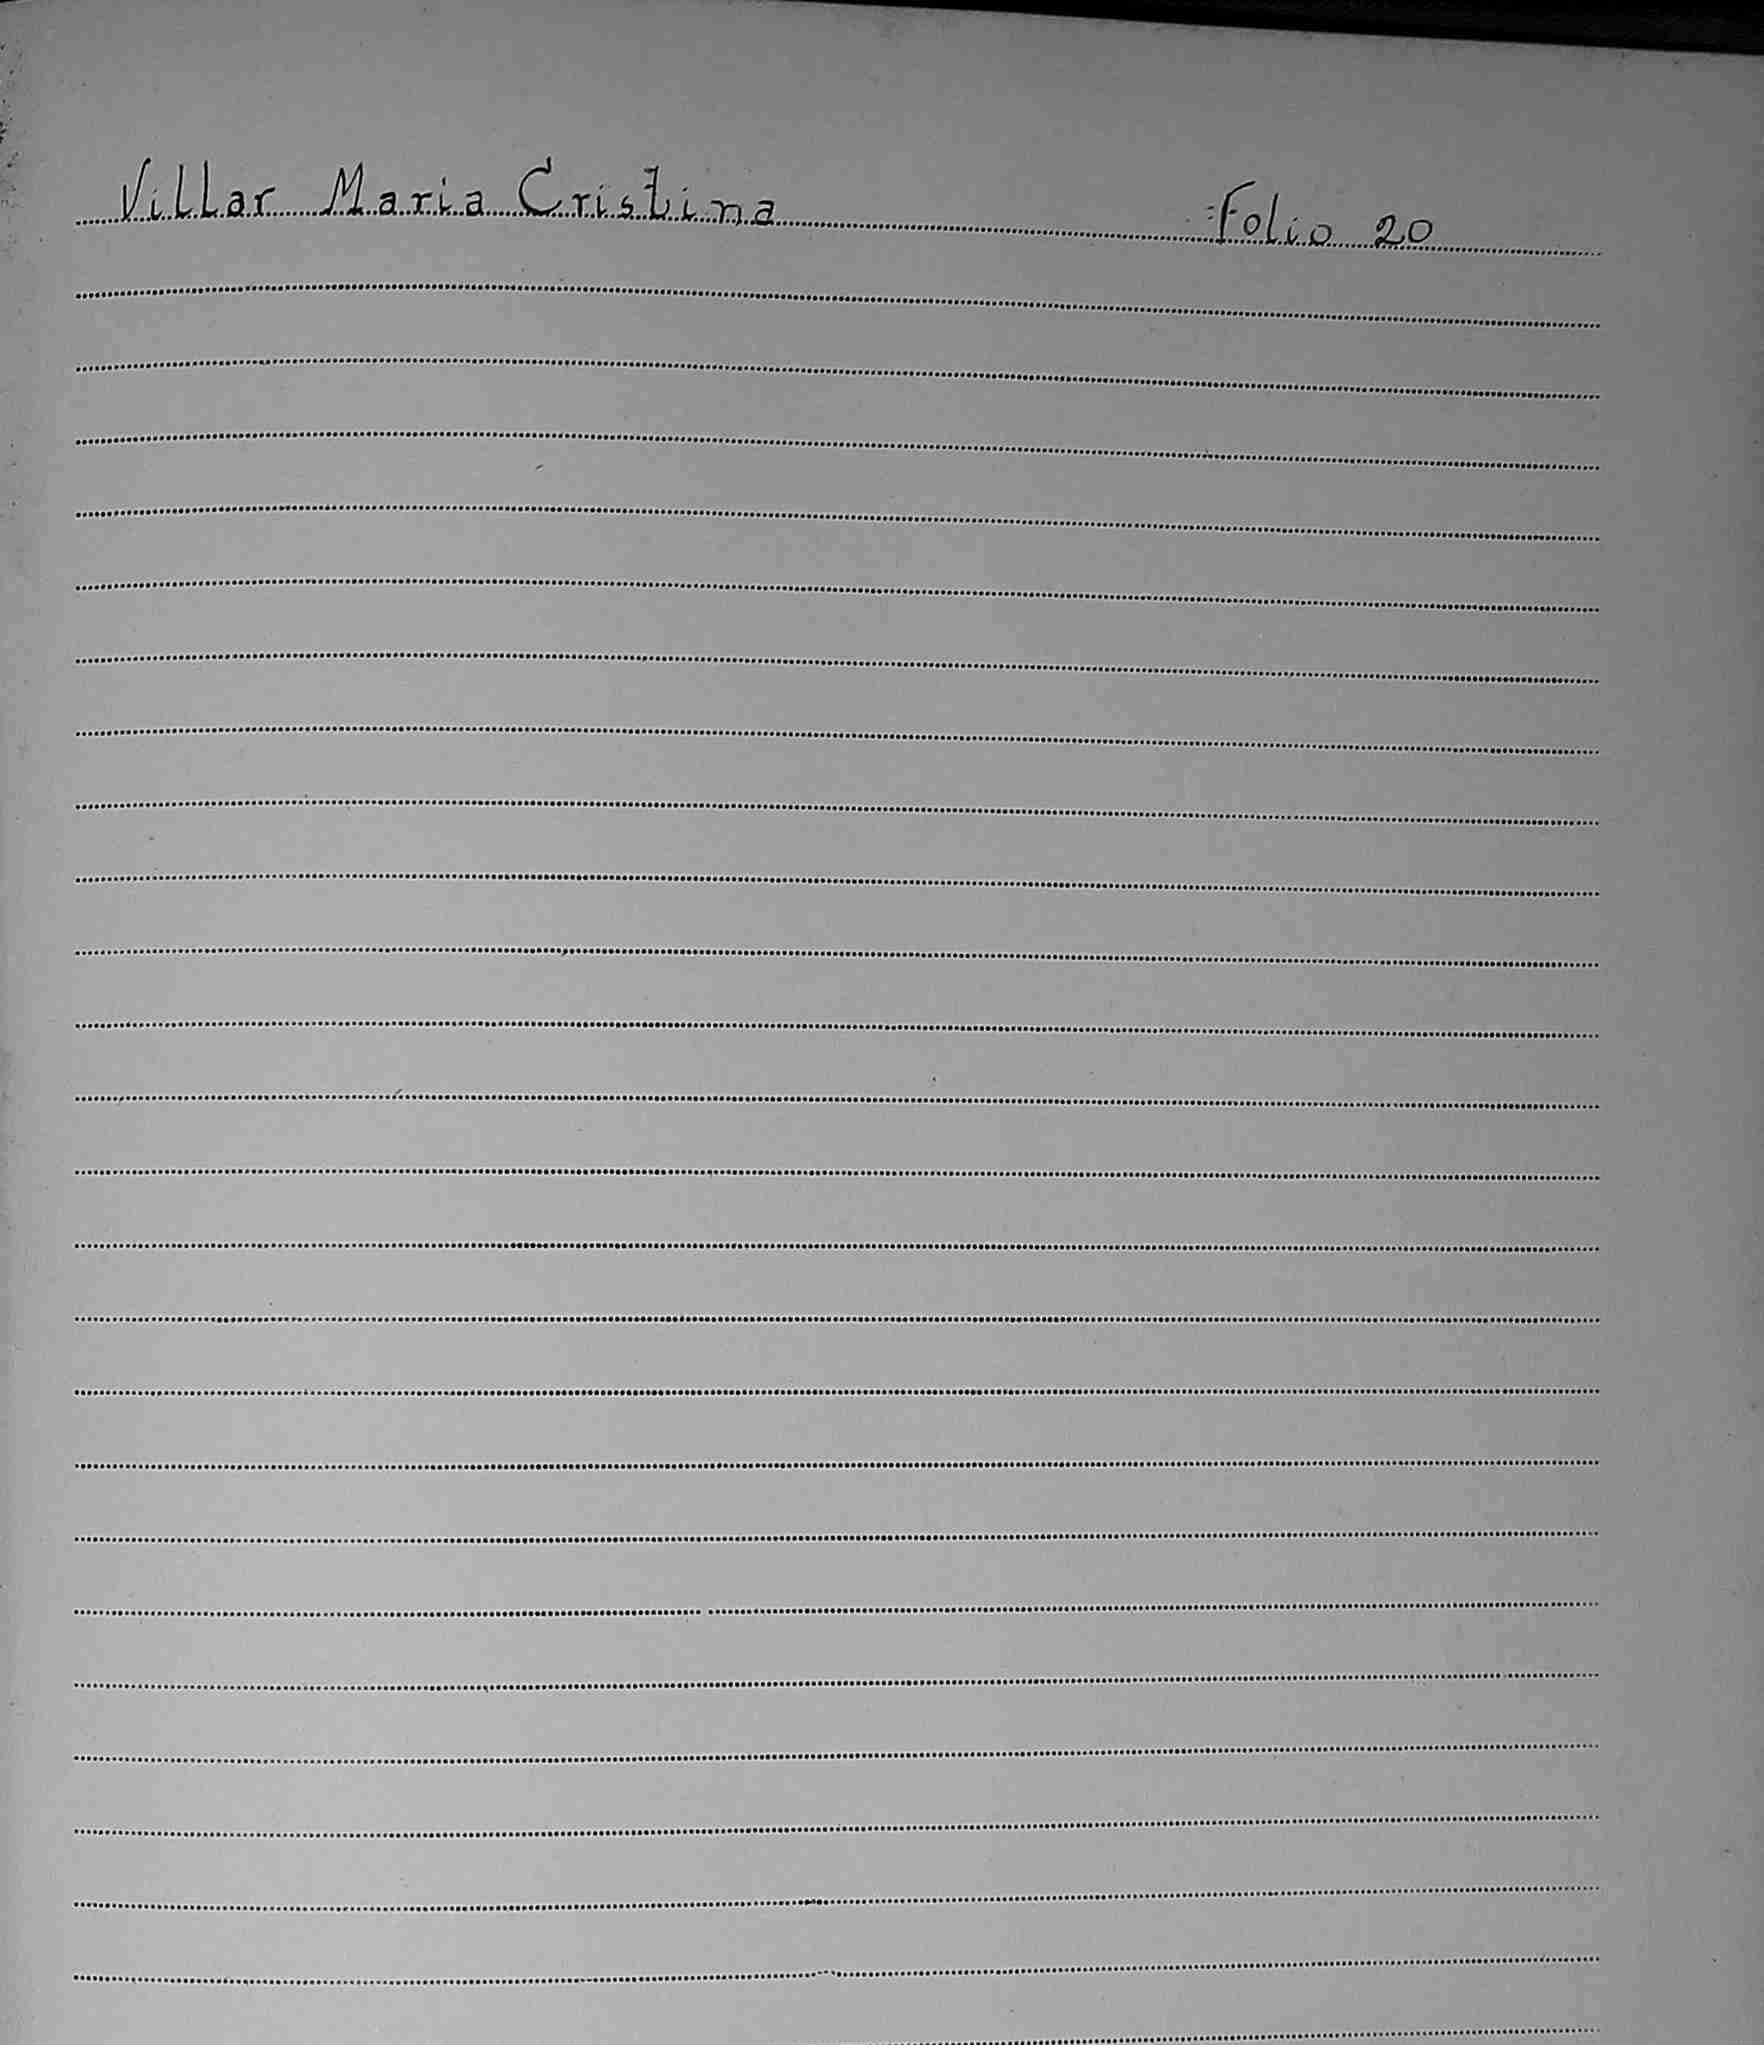 Villar Maria Cristina Folio 20